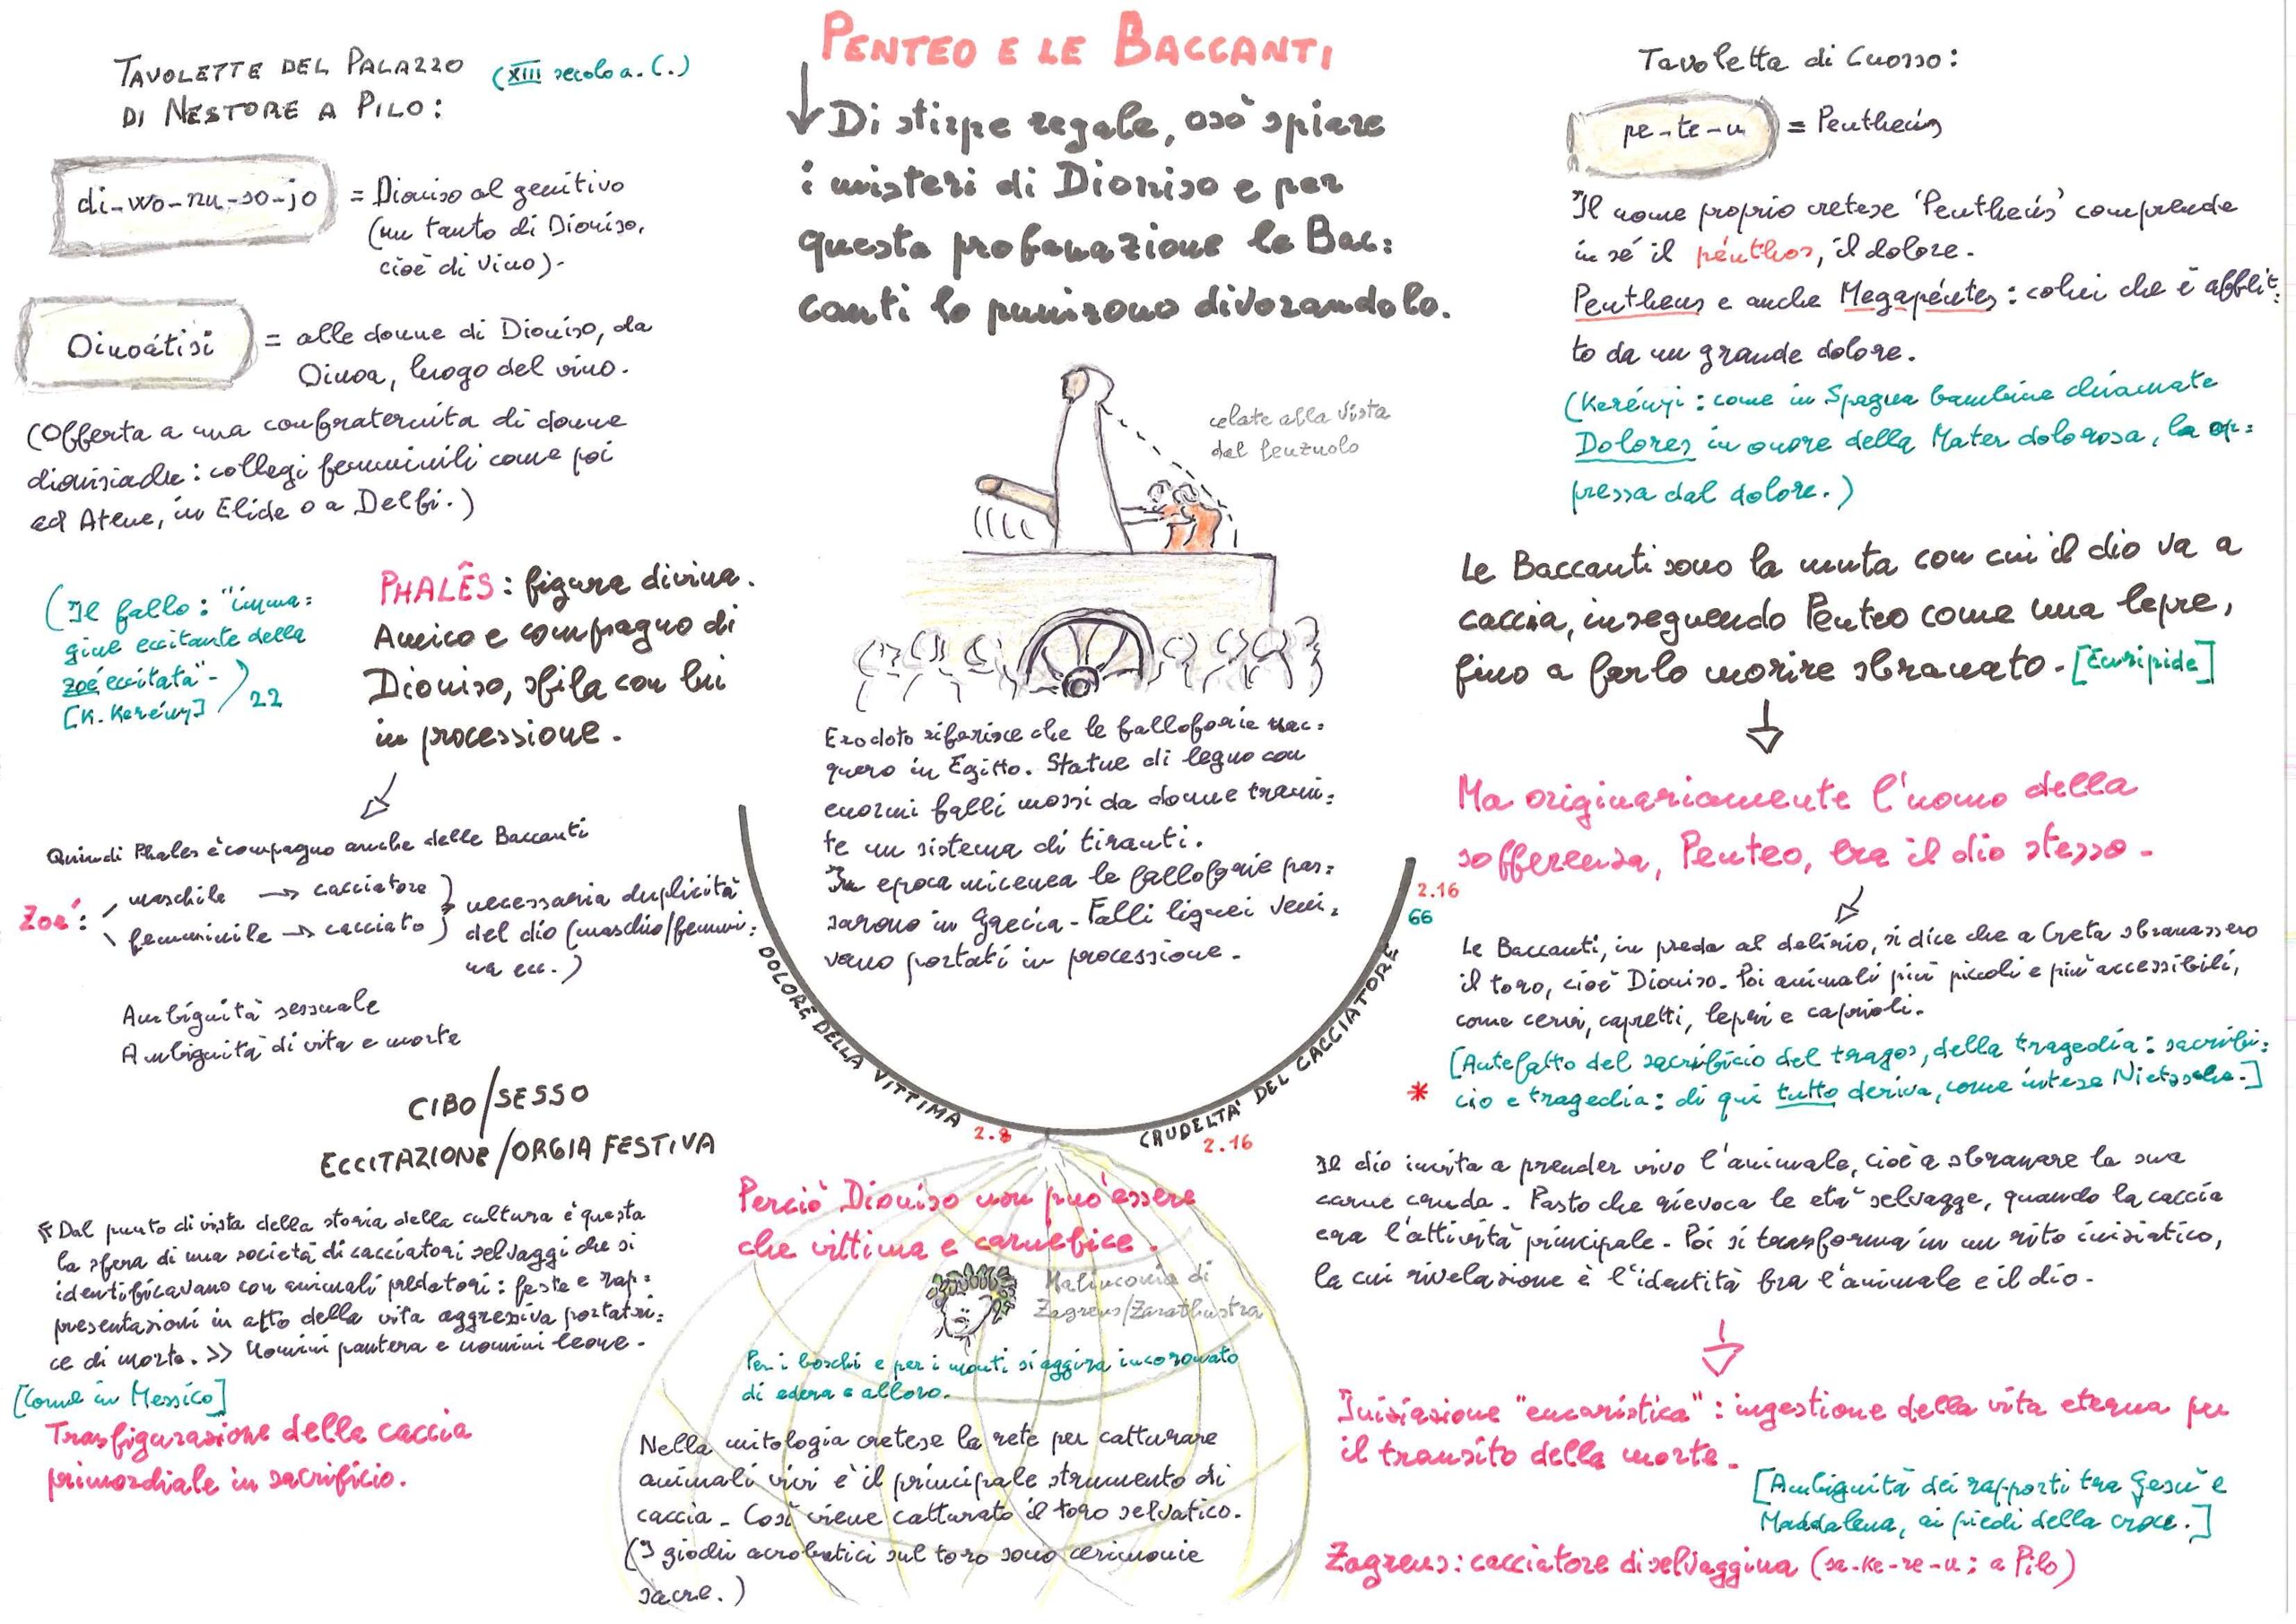 PENTEO E LE BACCANTI
Di stirpe regale, osò spiare
i misteri di Dioniso e per
questa profanazione le Bac=
canti lo punirono divorandolo.
TAVOLETTE DEL PALAZZO (XIII secolo a.C.)
DI NESTORE A PILO:
di-wo-nu-so-jo = Dioniso al genitivo
(un tanto di Dioniso,
cioè di vino)-
Oinoátisi = alle donne di Dioniso, da
Oinoa, luogo del vino.
(Offerta a una confraternita di donne
dionisiache: collegi femminili come poi
ad Atene, in Elide o a Delfi.)
(Il fallo: "imma=
gine eccitante della
zoé eccitata"-
[K. Kerényi] ) 22
PHALÊS: figura divina.
Amico e compagno di
Dioniso, sfila con lui
in processione.
Quindi Phales è compagno anche delle Baccanti
Zoé: maschile → cacciatore
femminile → cacciato
necessaria duplicità
del dio (maschio/femmi=
na ecc.)
Ambiguità sessuale
Ambiguità di vita e morte
CIBO/SESSO
ECCITAZIONE/ORGIA FESTIVA
«Dal punto di vista della storia della cultura è questa
la sfera di una società di cacciatori selvaggi che si
identificavano con animali predatori: feste e rap=
presentazioni in atto della vita aggressiva portatri=
ce di morte.» Uomini pantera e uomini leone.
[Come in Messico]
Trasfigurazione della caccia
primordiale in sacrificio.
celate alla vista
dal lenzuolo
Erodoto riferisce che le falloforie nac=
quero in Egitto. Statue di legno con
enormi falli mossi da donne trami=
te un sistema di tiranti.
In epoca micenea le falloforie pas=
sarono in Grecia - Falli lignei veni=
vano portati in processione.
DOLORE DELLA VITTIMA 2.8
CRUDELTA' DEL CACCIATORE
2.16
2.16
66
Perciò Dioniso non può essere
che vittima e carnefice.
Malinconia di
Zagreus/Zarathustra
Per i boschi e per i monti si aggira incoronato
di edera e alloro.
Nella mitologia cretese la rete per catturare
animali vivi è il principale strumento di
caccia - Così viene catturato il toro selvatico.
(I giochi acrobatici sul toro sono cerimonie
sacre.)
Tavoletta di Cnosso:
pe-te-u = Pentheús
"Il nome proprio cretese 'Pentheús' comprende
in sé il pénthos, il dolore.
Pentheus e anche Megapéntes: colui che è afflit=
to da un grande dolore.
(Kerényi: come in Spagna bambine chiamate
Dolores in onore della Mater dolorosa, la op=
pressa dal dolore.)
Le Baccanti sono la muta con cui il dio va a
caccia, inseguendo Penteo come una lepre,
fino a farlo morire sbranato. [Euripide]
Ma originariamente l'uomo della
sofferenza, Penteo, era il dio stesso -
Le Baccanti, in preda al delirio, si dice che a Creta sbranassero
il toro, cioè Dioniso. Poi animali più piccoli e più accessibili,
come cervi, capretti, lepri e caprioli.
[Antefatto del sacrificio del tragos, della tragedia: sacrifi=
* cio e tragedia: di qui tutto deriva, come intese Nietzsche.]
Il dio invita a prender vivo l'animale, cioè a sbranare la sua
carne cruda. Pasto che rievoca le età selvagge, quando la caccia
era l'attività principale - Poi si trasforma in un rito iniziatico,
la cui rivelazione è l'identità fra l'animale e il dio.
Iniziazione "eucaristica": ingestione della vita eterna per
il transito della morte.
[Ambiguità dei rapporti tra Gesù e
Maddalena, ai piedi della croce.]
Zagreus: cacciatore di selvaggina (sa-ke-re-u; a Pilo)